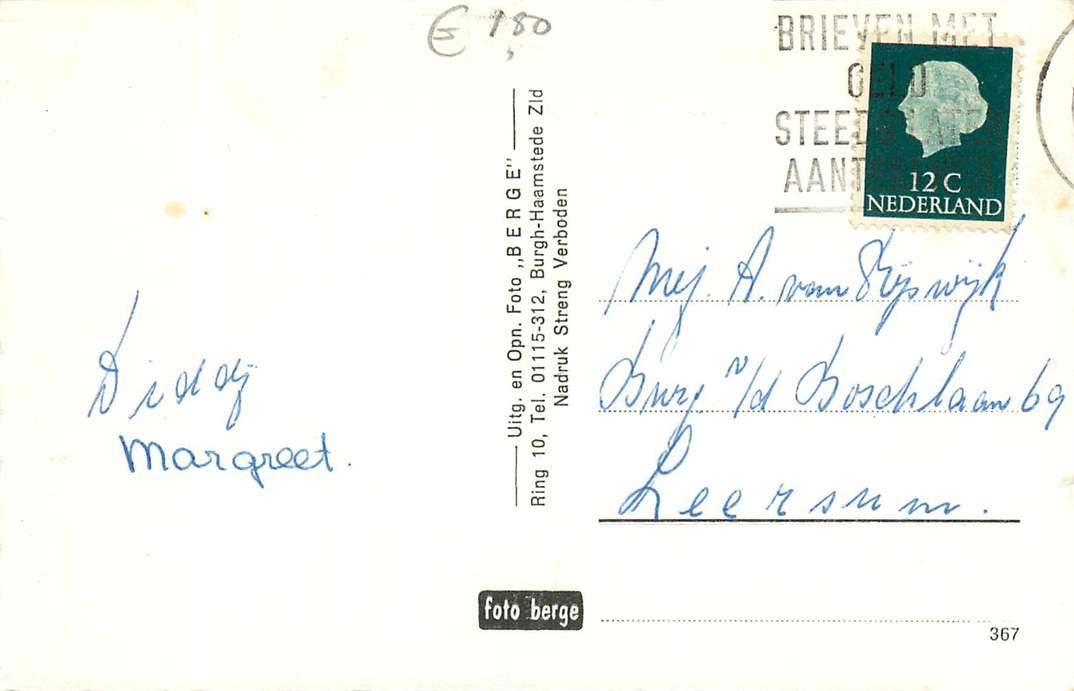 € 1,80
BRIEVEN MET
GELD
STEEDS
12 C
NEDERLAND
Diddy
Margreet.
Uitg. en Opn. Foto „BERGE”
Ring 10, Tel. 01115-312, Burgh-Haamstede Zld
Nadruk Streng Verboden
Mej. A. van Rijswijk
Burg v/d Boschlaan 69
Leersum.
foto berge
367